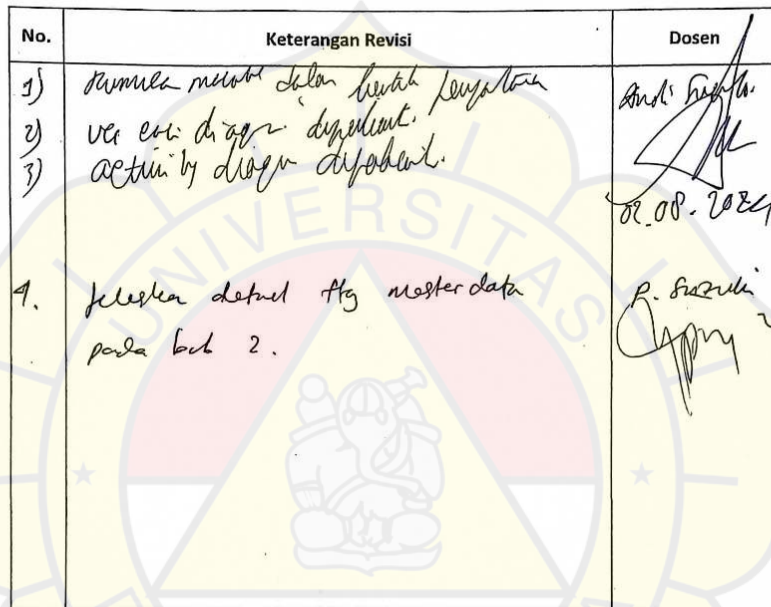 No. Keterangan Revisi Dosen
1) Rumusan masalah dalam bentuk pernyataan
2) use case diagram diperbaiki.
3) activity diagram diperbaiki.
Andi
02.08.2024
4. Jelaskan detail ttg master data
pada bab 2.
R. Suzuki
UNIVERSITAS